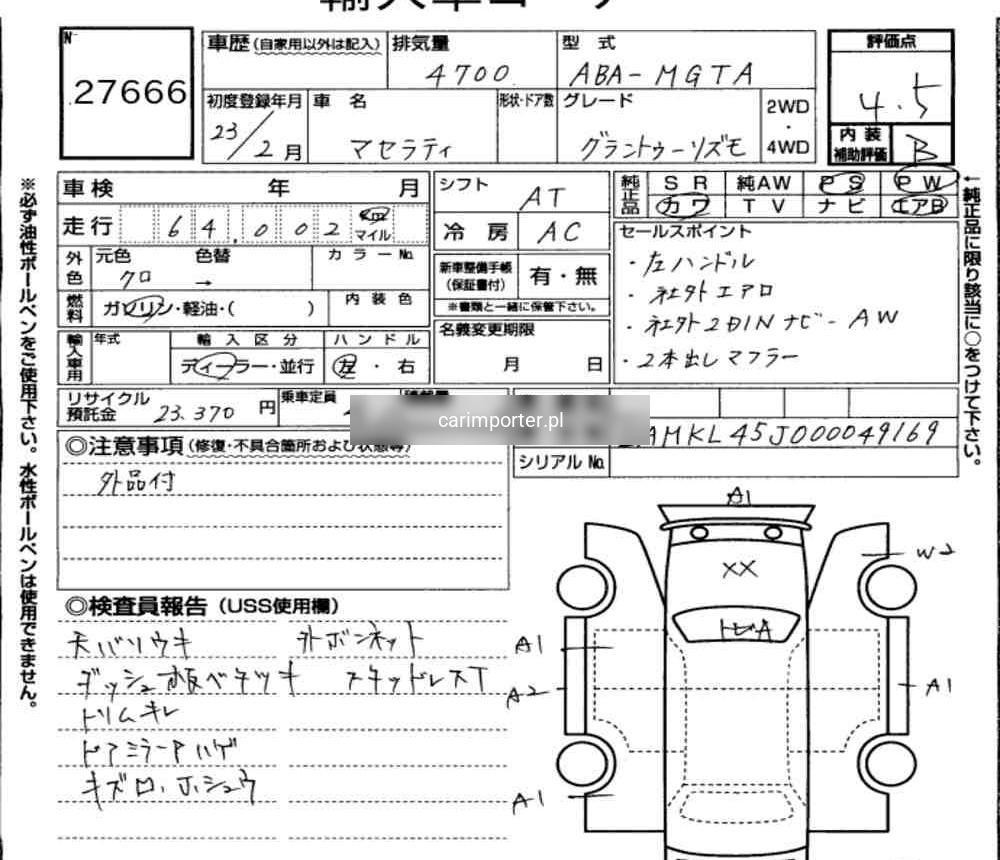 27666
車歴(自家用以外は記入)
排気量
4700
型 式
ABA-MGTA
評価点
4.5
内装補助評価
B
初度登録年月
23/2月
車 名
マセラティ
形状・ドア数
グレード
グラントゥーリズモ
2WD・4WD
※必ず油性ボールペンをご使用下さい。水性ボールペンは使用できません。
車検 年 月
走行 64,002 km マイル
外色
元色 クロ
色替 →
カラーNo.
燃料
ガソリン・軽油・( )
内装色
輸入車用
年式
輸入区分
ディーラー・並行
ハンドル
左・右
シフト
AT
冷房
AC
新車整備手帳(保証書付)
有・無
※書類と一緒に保管下さい。
名義変更期限
月 日
純正品
SR 純AW PS PW
カワ TV ナビ エアB
セールスポイント
・左ハンドル
・社外エアロ
・社外2DINナビ-AW
・2本出しマフラー
←純正品に限り該当に○をつけて下さい。
リサイクル預託金
23.370円
乗車定員
carimporter.pl
AMKL45J000049169
シリアルNo.
◎注意事項(修復・不具合箇所および状態等)
外品付
◎検査員報告(USS使用欄)
天バリウキ
外ボンネット
ダッシュ板ベタツキ
スタッドレスT
トリムキレ
ドアミラーPハゲ
A1
W2
XX
トビA
A1
A2
A1
A1